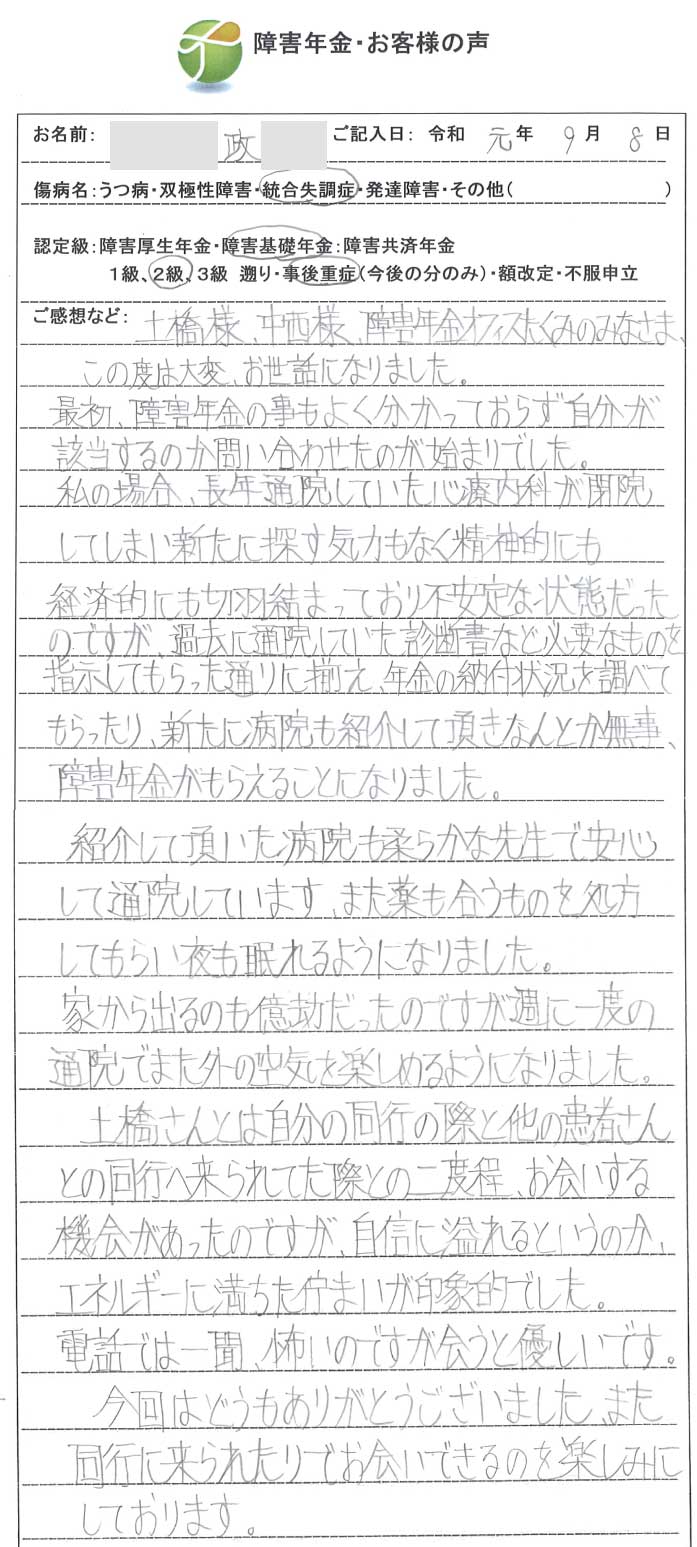 障害年金・お客様の声
お名前: 政 ご記入日: 令和 元年 9月 8日
傷病名:うつ病・双極性障害・統合失調症・発達障害・その他( )
認定級:障害厚生年金・障害基礎年金:障害共済年金
1級、2級、3級 遡り・事後重症(今後の分のみ)・額改定・不服申立
ご感想など: 土橋様、中西様、障害年金オフィスたくみのみなさま、
この度は大変、お世話になりました。
最初、障害年金の事もよく分かっておらず自分が
該当するのか問い合わせたのが始まりでした。
私の場合、長年通院していた心療内科が閉院
してしまい新たに探す気力もなく精神的にも
経済的にも切羽結まっており不安定な状態だった
のですが、過去に通院していた診断書など必要なものを
指示してもらった通りに揃え、年金の納付状況を調べて
もらったり、新たに病院も紹介して頂きなんとか無事、
障害年金がもらえることになりました。
紹介して頂いた病院も柔らかな先生で安心
して通院しています、また薬も合うものを処方
してもらい夜も眠れるようになりました。
家から出るのも億劫だったのですが週に一度の
通院でまた外の空気を楽しめるようになりました。
土橋さんとは自分の同行の際と他の患者さん
との同行へ来られてた際との二度程、お会いする
機会があったのですが、自信に溢れるというのか、
エネルギーに満ちた佇まいが印象的でした。
電話では一聞、怖いのですが会うと優しいです。
今回はどうもありがとうございました、また
同行に来られたりでお会いできるのを楽しみに
しております。